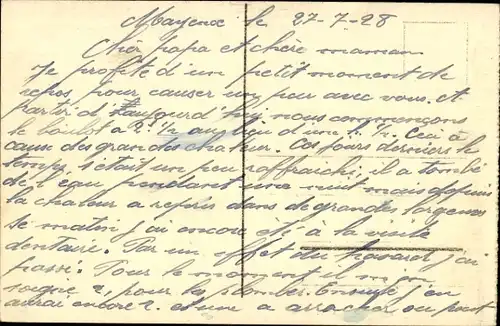 Mayence le 27-7-28
Cher papa et chère maman
Je profite d'un petit moment de
repos pour causer un peu avec vous. A
partir d'aujourd'hui nous commençons
le boulot a 2 h 1/2 au lieu d'une h 1/2. Ceci à
cause des grandes chaleur. Ces jours derniers le
temps s'était un peu raffraichi, il a tombé
de l'eau pendant une nuit mais depuis
la chaleur a repris dans de grandes largeurs
Ce matin j'ai encore été à la visite
dentaire. Par un effet du hasard j'ai
passé. Pour le moment il m'en
soigne 2, pour les plomber. Ensuite j'en
aurai encore 2 et une a arracher ou peut